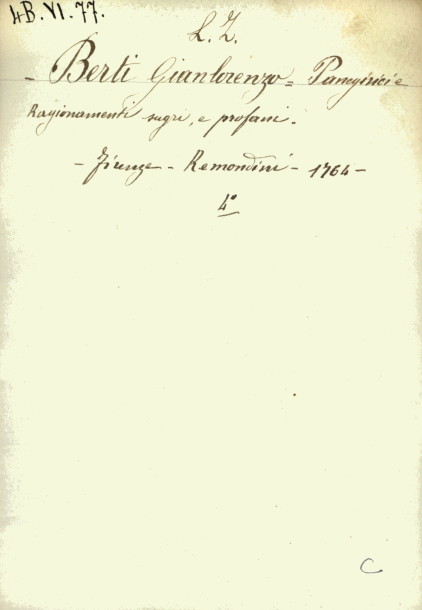 4B.VI.77.
L. Z.
- Berti Gianlorenzo = Panegirici e
Ragionamenti sagri, e profani.
- Firenze - Remondini - 1764 -
4°
C